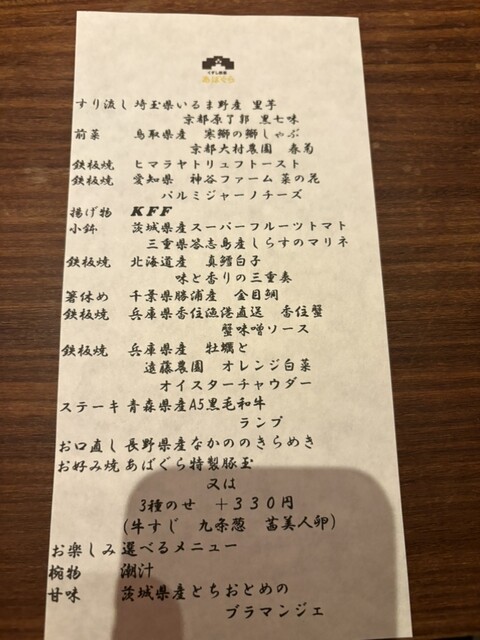 くずし割烹
あばぐら
すり流し 埼玉県いるま野産 里芋
京都原了郭 黒七味
前菜 鳥取県産 寒鰤の鰤しゃぶ
京都大村農園 春菊
鉄板焼 ヒマラヤトリュフトースト
鉄板焼 愛知県 神谷ファーム 菜の花
パルミジャーノチーズ
揚げ物 KFF
小鉢 茨城県産スーパーフルーツトマト
三重県答志島産しらすのマリネ
鉄板焼 北海道産 真鱈白子
味と香りの三重奏
箸休め 千葉県勝浦産 金目鯛
鉄板焼 兵庫県香住漁港直送 香住蟹
蟹味噌ソース
鉄板焼 兵庫県産 牡蠣と
遠藤農園 オレンジ白菜
オイスターチャウダー
ステーキ 青森県産A5黒毛和牛
ランプ
お口直し 長野県産なかののきらめき
お好み焼 あばぐら特製豚玉
又は
3種のせ +330円
(牛すじ 九条葱 茜美人卵)
お楽しみ 選べるメニュー
椀物 潮汁
甘味 茨城県産とちおとめの
ブラマンジェ